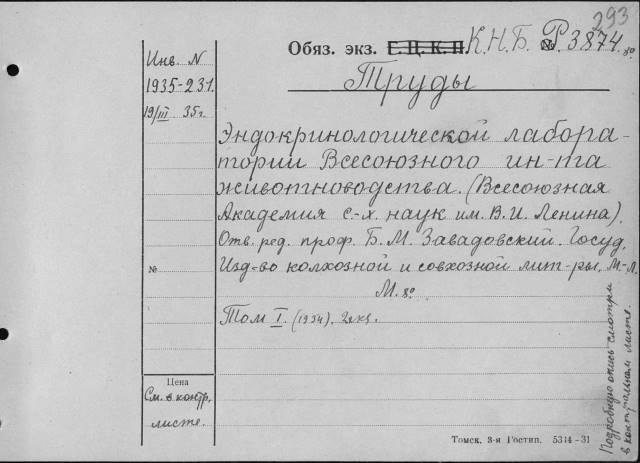 293
Обяз. экз. Г.Ц.К.П. К.Н.Б. № Р.3874. 8°
Инв. N
1935-231.
19/III 35г.
Труды
Эндокринологической лабора-
тории Всесоюзного ин-та
животноводства. (Всесоюзная
Академия с.-х. наук им. В.И. Ленина).
Отв. ред. проф. Б.М. Завадовский. Госуд.
№
Изд-во колхозной и совхозной лит-ры. М.-Л.
М. 8°
Том I. (1934). 2 экз.
Цена
См. в контр.
листе.
Подробную опись смотри
в контрольном листе.
Томск. 3-я Гостип. 5314-31